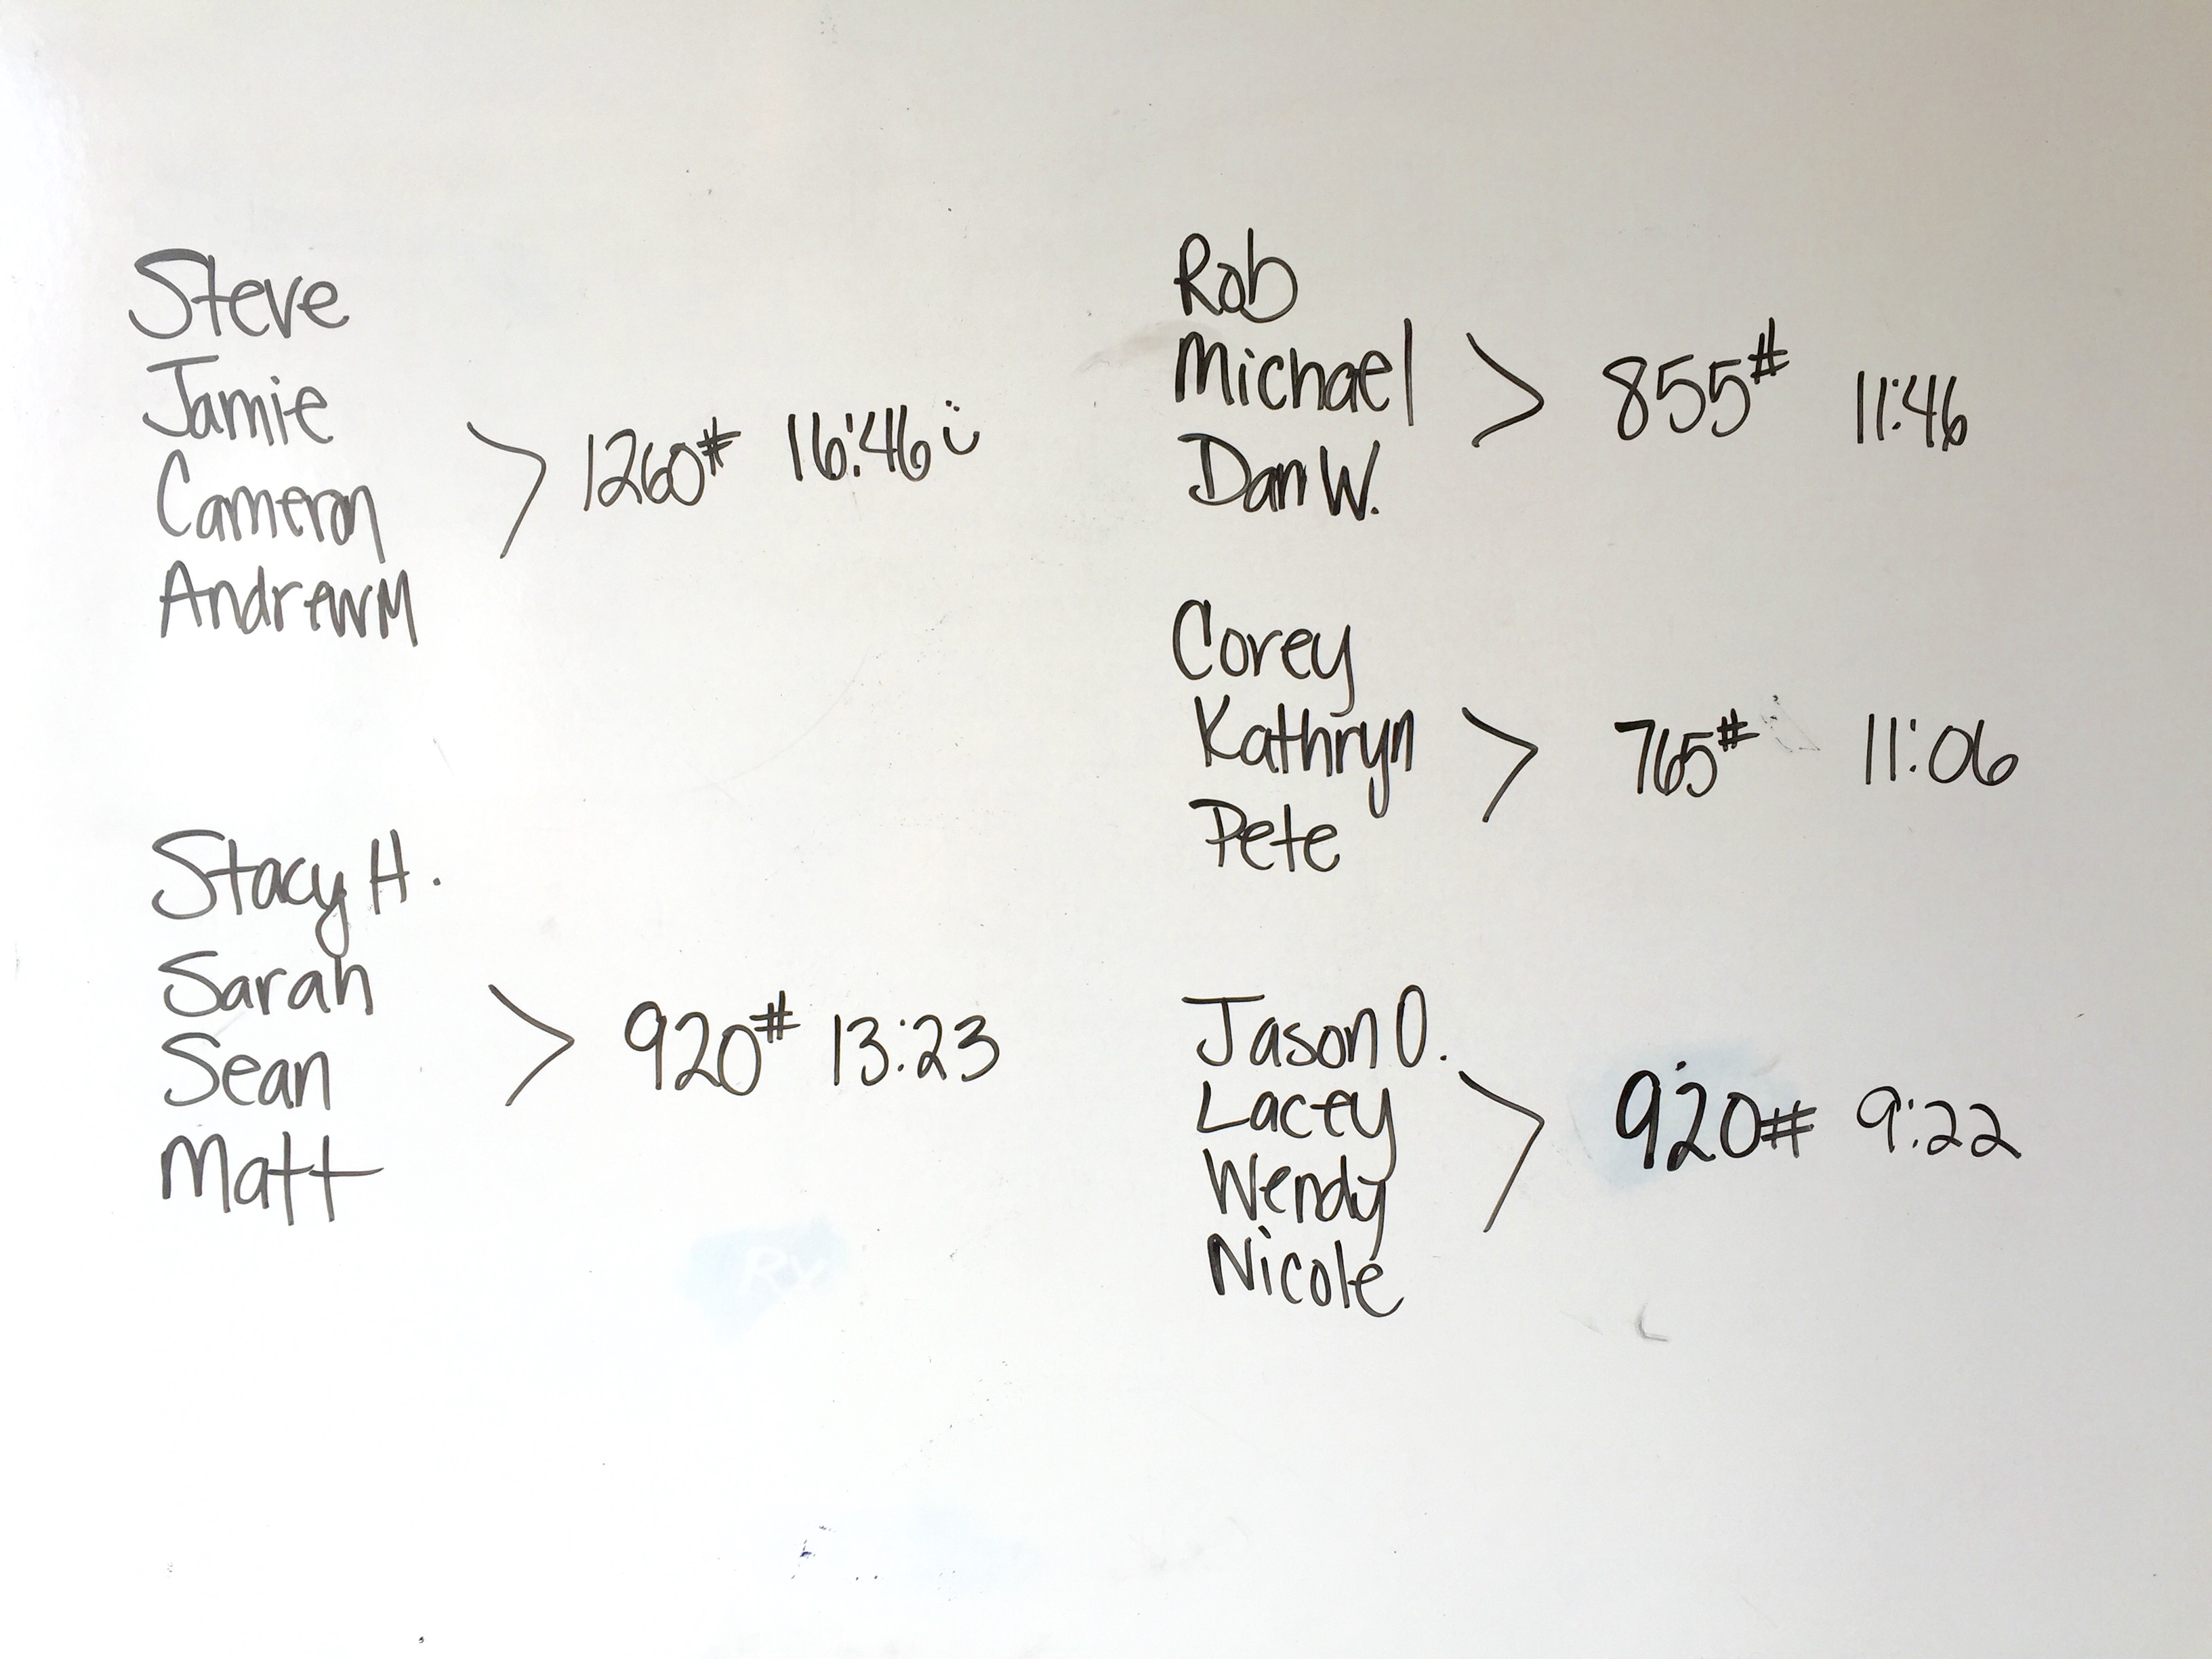 Steve
Jamie
Cameron
Andrew M
> 1260# 16:46 :)
Stacy H.
Sarah
Sean
Matt
> 920# 13:23
Rx
Rob
Michael
Dan W.
> 855# 11:46
Corey
Kathryn
Pete
> 765# 11:06
Jason O.
Lacey
Wendy
Nicole
> 920# 9:22